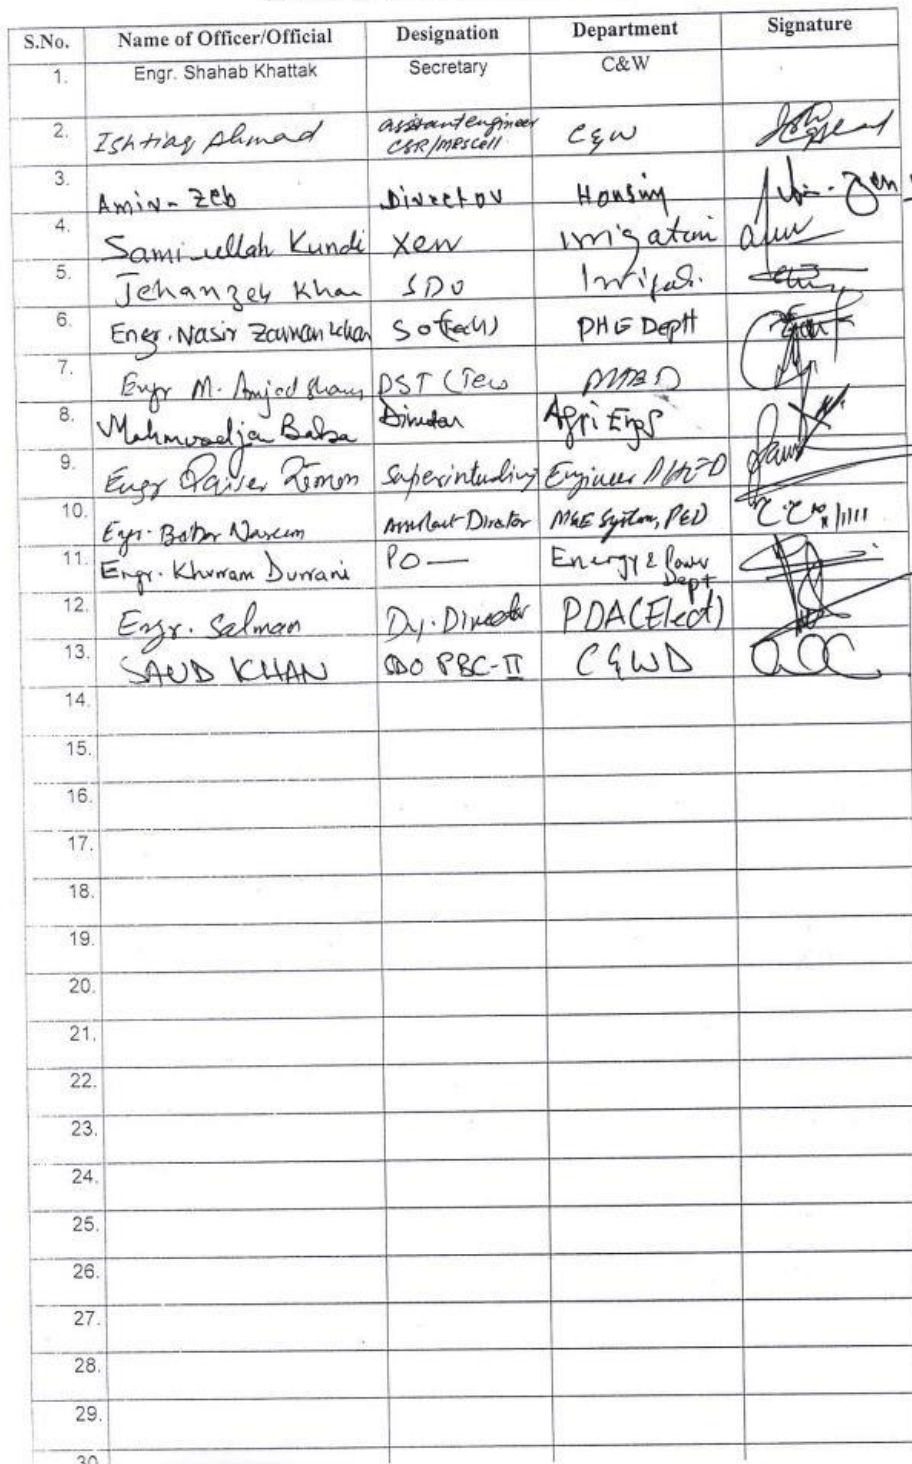 S.No. Name of Officer/Official Designation Department Signature
1. Engr. Shahab Khattak Secretary C&W
2. Ishtiaq Ahmad assistant engineer C&W
CSR/MRS Cell
3. Amir-Zeb Director Housing
4. Sami-ullah Kundi Xen Irrigation
5. Jehanzeb Khan SDO Irrigati.
6. Engr. Nasir Zaman Khan SO(Tech) PHE Deptt
7. Engr M. Amjad
8. Director Agri Engg
9. Engr Qaiser Zaman Superintending Engineer
10. Engr. Babar Naeem Assistant Director M&E System, PED
11. Engr. Khurram Durrani PO — Energy & Power
Dept
12. Engr. Salman Dy. Director PDA (Elect)
13. SAUD KHAN SDO PBC-II C&WD
14.
15.
16.
17.
18.
19.
20.
21.
22.
23.
24.
25.
26.
27.
28.
29.
30.